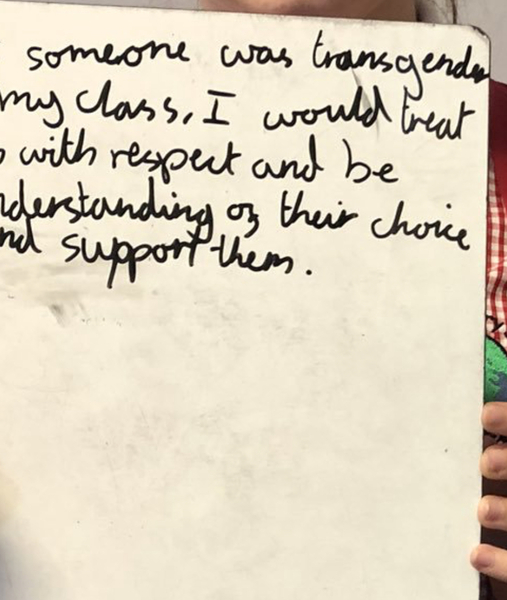 someone was transgender
my class, I would treat
with respect and be
nderstanding of their choice
nd support them.